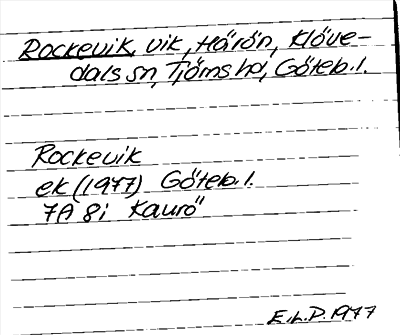 Rockevik, vik, Härön, Klöve-
dals sn, Tjörns hd, Göteb. l.
Rockevik
ek (1977) Göteb. l.
7A 8i Kaurö
E.L.P. 1977